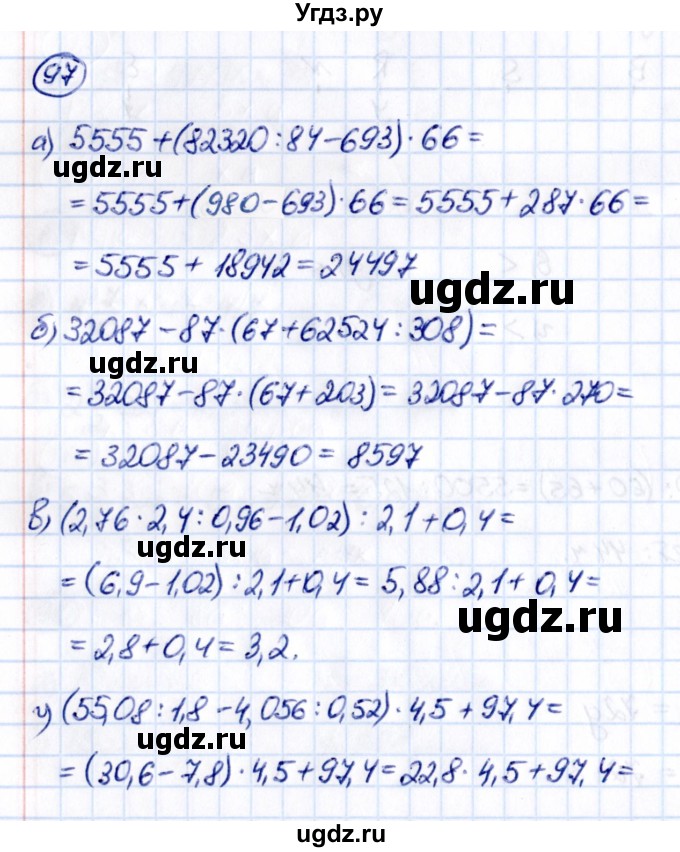 Угдз.ру
97
а) 5555+(82320:84-693)·66=
ugdz.ru
=5555+(980-693)·66=5555+287·66=
=5555+18942=24497
ugdz.ru
б) 32087-87·(67+62524:308)=
ugdz.ru
=32087-87·(67+203)=32087-87·270=
=32087-23490=8597
в) (2,76·2,4:0,96-1,02):2,1+0,4=
ugdz.ru
=(6,9-1,02):2,1+0,4=5,88:2,1+0,4=
ugdz.ru
=2,8+0,4=3,2.
г) (55,08:1,8-4,056:0,52)·4,5+97,4=
ugdz.ru
=(30,6-7,8)·4,5+97,4=22,8·4,5+97,4=
ugdz.ru